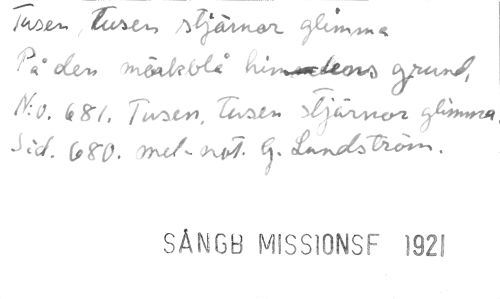 Tusen, tusen stjärnor glimma
På den mörkblå himmelens grund,
N:o. 681. Tusen, tusen stjärnor glimma,
Sid. 680. mel.-not. G. Lundström.
SÅNGB MISSIONSF 1921